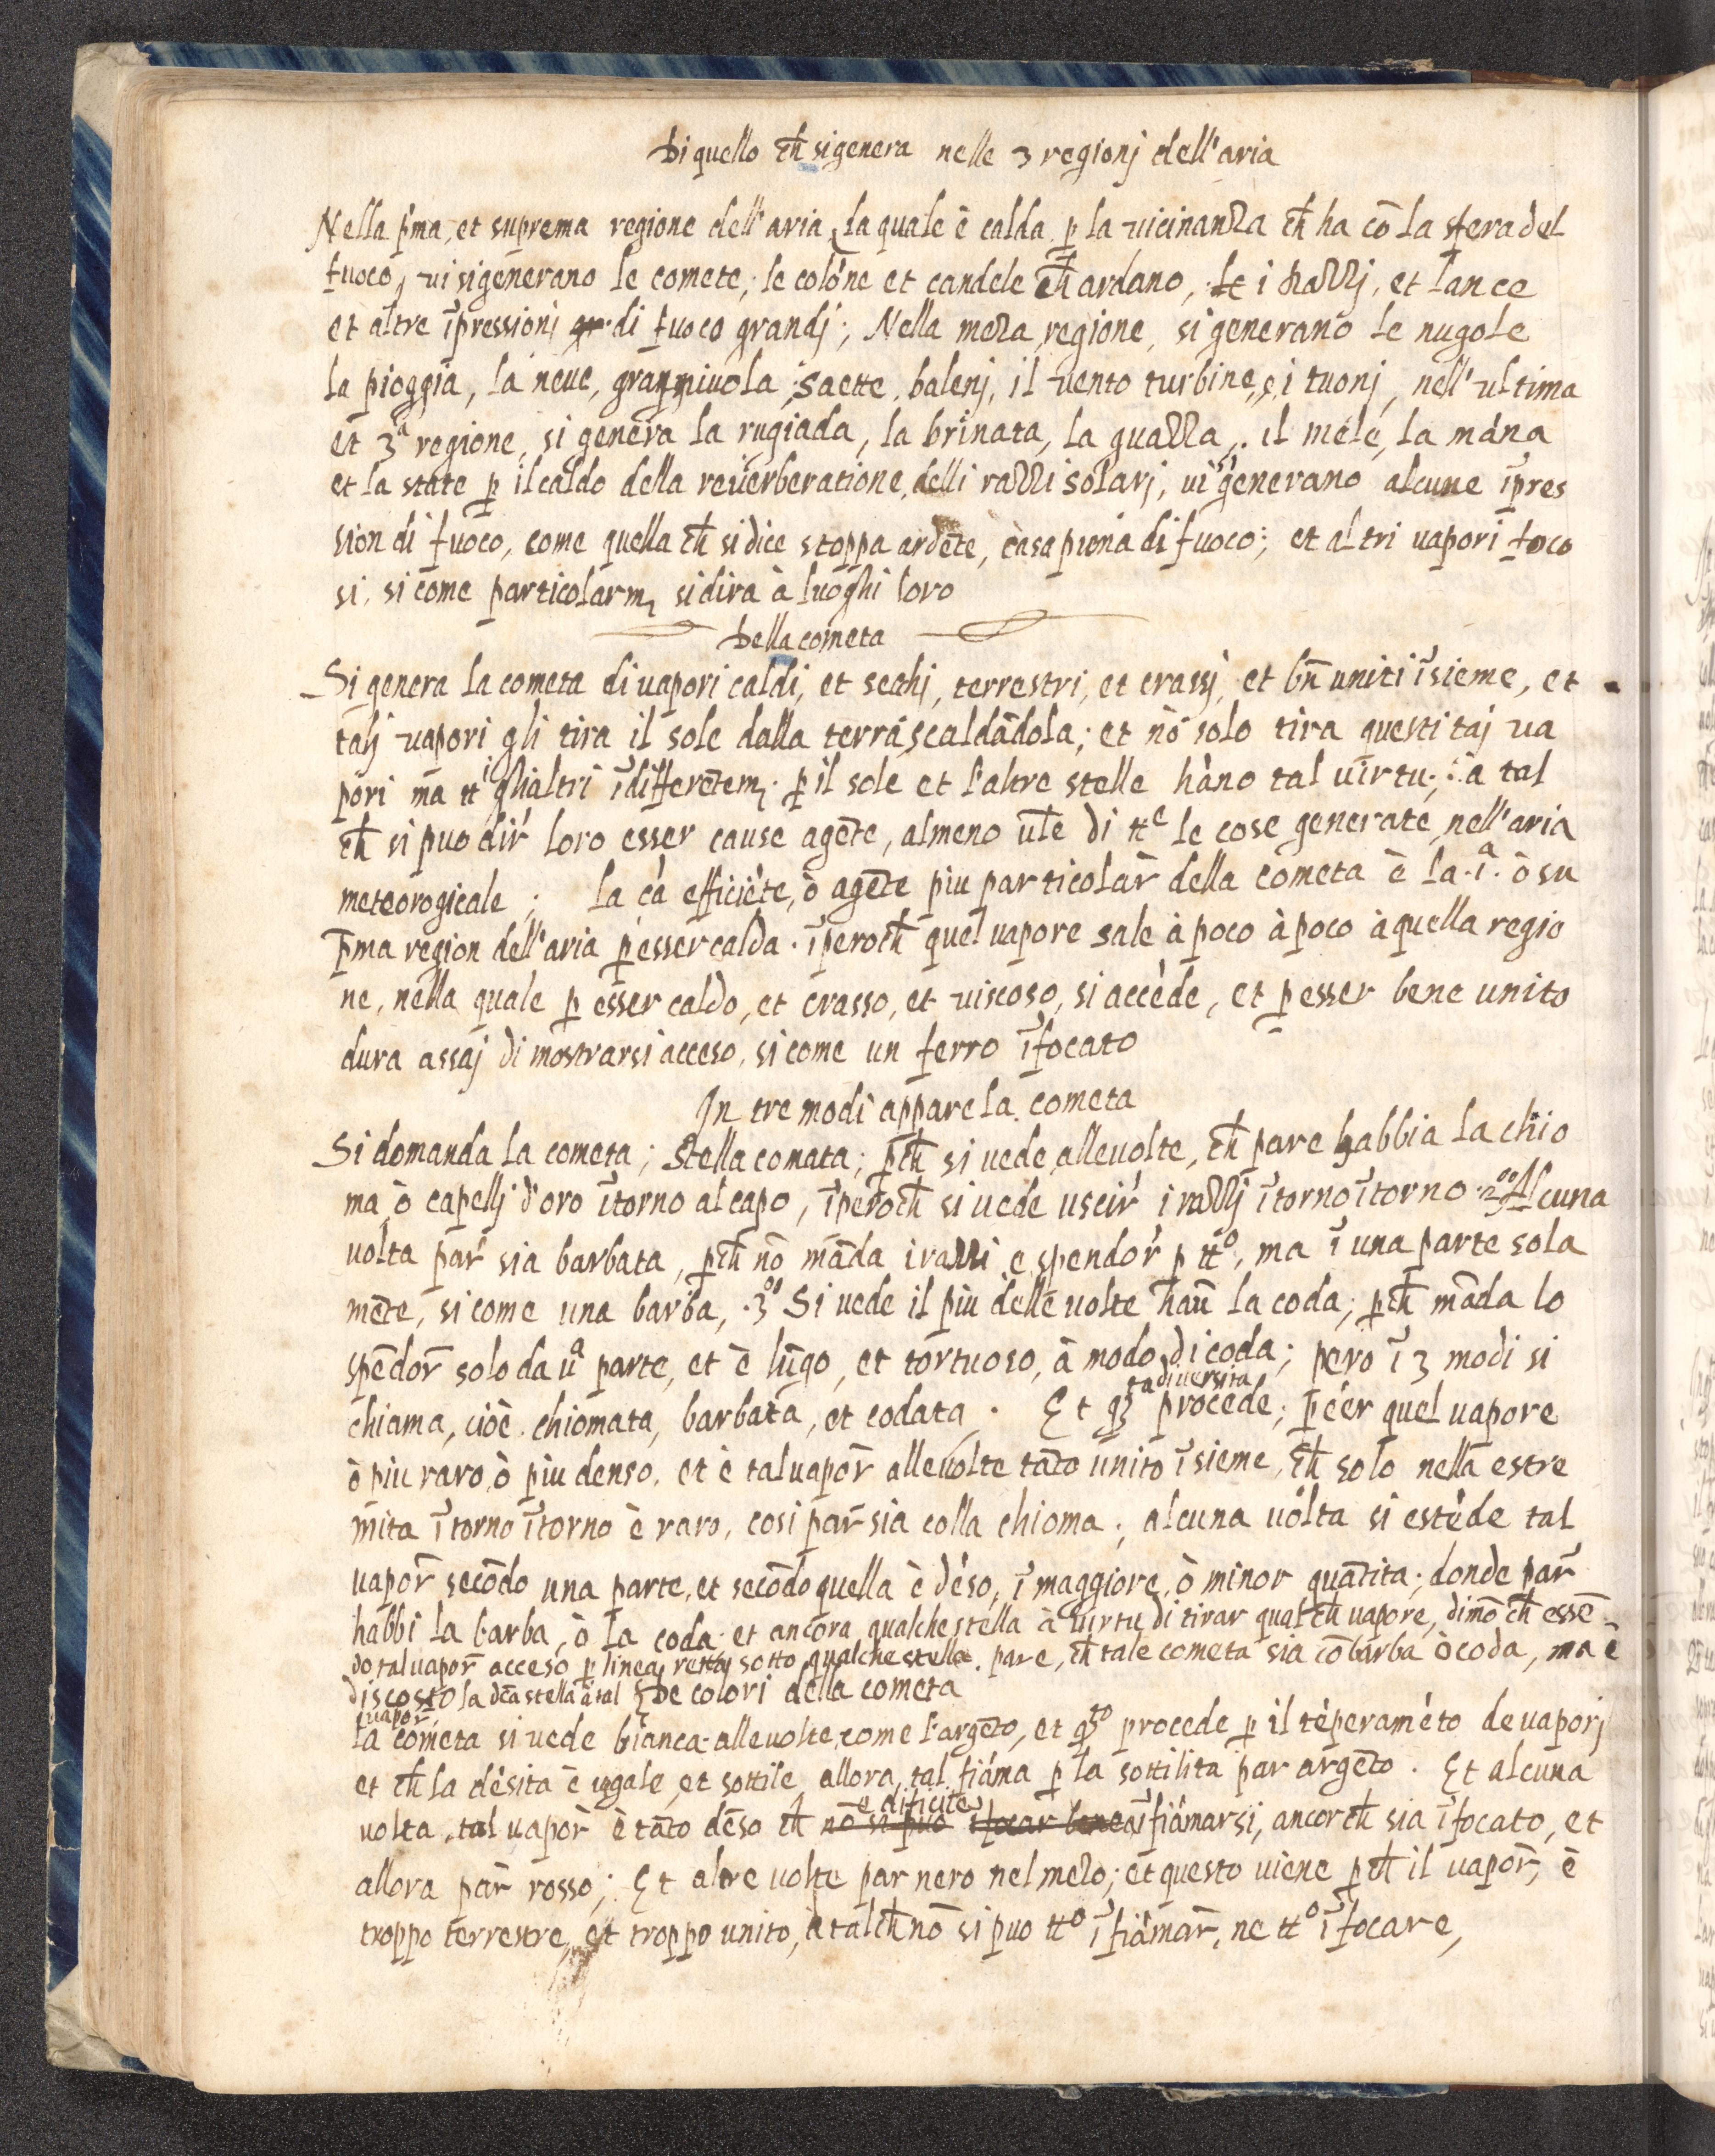 Di quello ch̄ si genera nelle 3 regionj dell'aria
Nella p'ma, et suprema regione dell'aria, la quale è calda p̱ la uicinanza ch̄ ha cō la sfera del
fuoco, ui si generano le comete, le colóne et candele ch̄ ardano, le i razzj, et lance
et altre īpressionj gr di fuoco grandj; Nella meza regione, si generano le nugole
la pioggia, la neue, gragniuola, saette, balenj, il uento turbine, e i tuonj, nell'ultima
et 3ª regione, si genera la rugiada, la brinata, la guazza, il mele, la mána
et la state p̱ il caldo della reuerberatione, delli razzi solarj, ui si generano alcune īpres
sion di fuoco, come quella ch̄ si dice stoppa ardēte, casa piena di fuoco; et altri uapori foco
si, si come particolarm, si dira à luoghi loro
Della cometa
Si genera la cometa di uapori caldi, et sechj, terrestri, et crassj, et bn̄ uniti īsieme, et
talj uapori gli tira il sole dalla terra, scaldādola; et nó solo tira questi taj ua
pori ma tti glialtri īdifferētem, p̱ il sole et l'altre stelle háno tal uirtu; à tal
ch̄ si puo dir' loro esser cause agēte, almeno ul̄e di tte le cose generate nell'aria
meteorogicale; la cá efficiēte, ò agēte piu particolar̄ della cometa è la .iª. ò su
p̱ma region dell'aria p̱ esser calda. īperoch̄ quel uapore sale à poco à poco à quella regio
ne, nella quale p̱ esser caldo, et crasso, et uiscoso, si accéde, et p̱ esser bene unito
dura assaj di mostrarsi acceso, si come un ferro īfocato
In tre modi appare la cometa
Si domanda la cometa; stella comata; p̱ch̄ si uede alleuolte, ch̄ pare habbia la chio
ma ò capellj d'oro ītorno al capo, īperoch̄ si uede uscir' i razzj ītorno ītorno .2º Alcuna
uolta par' sia barbata, p̱ch̄ nō māda i razzi e spendór' p̱ ttº, ma ī una parte sola
mēte, si come una barba, .3º Si uede il piu delle uolte hau̅ la coda; p̱ch̄ māda lo
spēdor̄ solo da uª parte, et è lūgo, et tortuoso, à modo di coda; pero ī 3 modi si
chiama, cioè chiomata, barbata, et codata. Et q̄3ta diuersita procede; p̱ éer quel uapore
ò piu raro, ò piu denso, et è tal uapor̄ alleuolte tāto unito īsieme, ch̄ solo nella estre
mita ītorno ītorno è raro, cosi par̄ sia colla chioma; alcuna uolta si estéde tal
uapor̄ secōdo una parte, et secōdo quella è déso, ī maggiore, ò minor quātita; donde par̄
habbi la barba, ò la coda et ancora qualche stella à uirtu di tirar qualch̄ uapore, dimō ch̄ essē
do tal uapor̄ acceso p̱ linea retta sotto qualche stella, pare, ch̄ tale cometa sia cō barba ò coda, ma è
discosto la dc̄a stella à tal uapor̄
De colori della cometa
la cometa si uede bianca alleuolte, come l'argēto, et q̄3to procede p̱ il téperaméto de uaporj
et ch̄ la désita è ugale, et sottile, allora tal fiáma p̱ la sottilita par argēto. Et alcuna
uolta, tal uapor̀ è tāto dēso ch̄ nō si puo ifocar bene è dificile īfiámarsi, ancorch̄ sia īfocato, et
allora par̄ rosso; Et altre uolte par nero nel mezo; et questo uiene p̱ch̄ il uapor̄, è
troppo terrestre, et troppo unito, à talch̄ nō si puo ttº īfiámar̄, ne ttº īfocare,